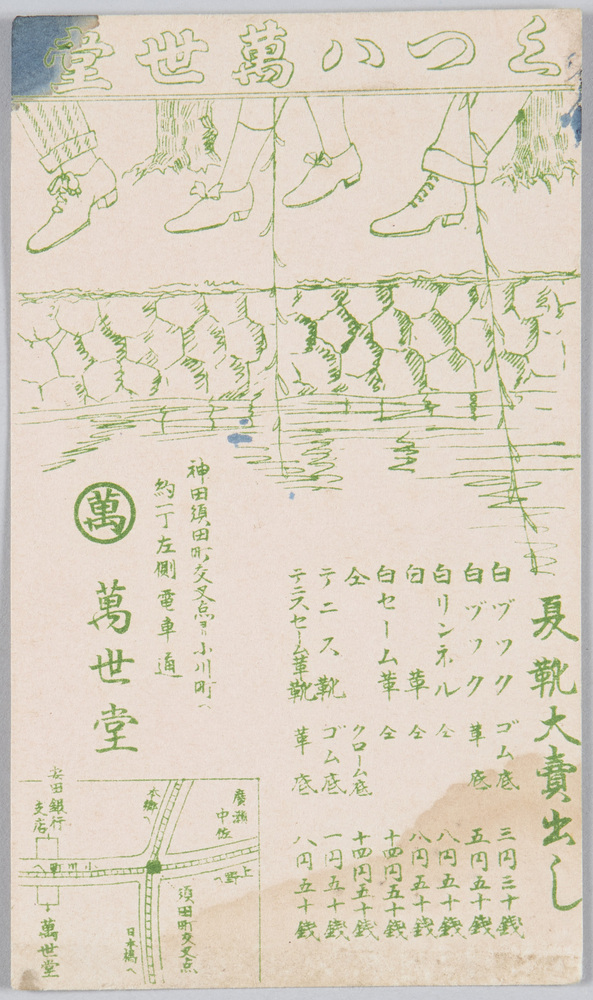 くつハ萬世堂
夏靴大賣出し
白ヅック ゴム底 三円三十錢
白ヅック 革底 五円五十錢
白リンネル 仝 八円五十錢
白革 仝 八円五十錢
白セーム革 仝 十四円五十錢
仝 クローム底 十四円五十錢
テニス靴 ゴム底 一円五十錢
テニスセーム革靴 革底 八円五十錢
神田須田町交叉点ヨリ小川町へ
約一丁左側電車通
萬
萬世堂
廣瀬
中佐
上野へ
本郷へ
須田町交叉点
日本橋へ
小川町へ
安田銀行
支店
萬世堂